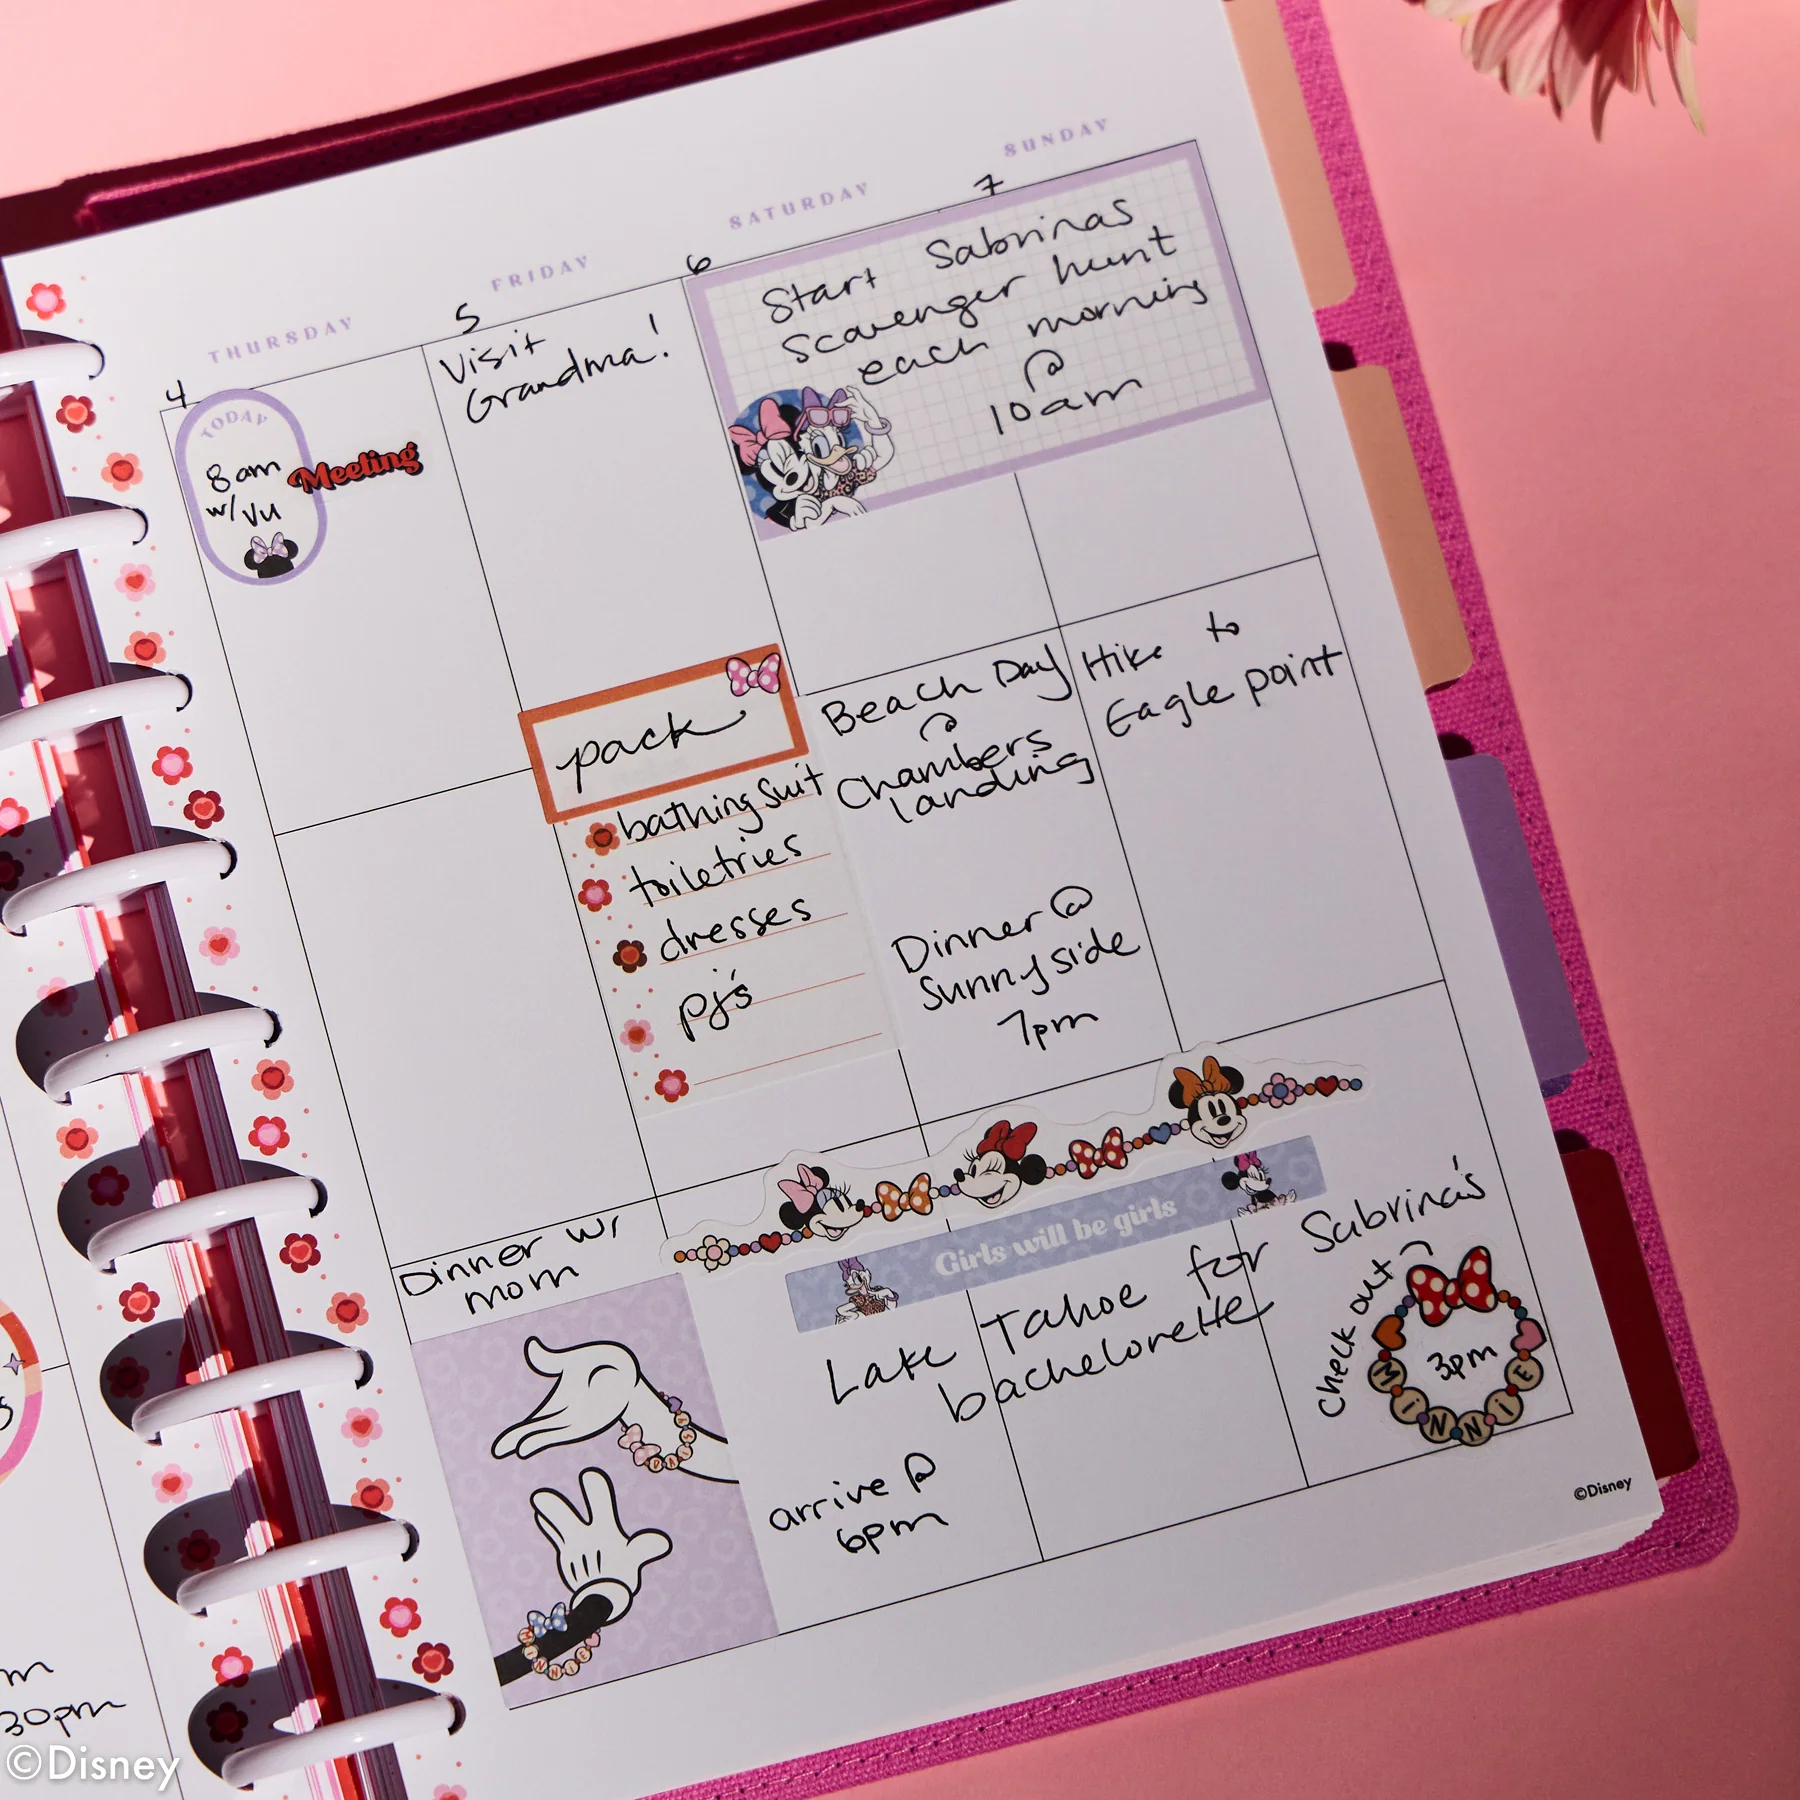 THURSDAY
FRIDAY
SATURDAY
SUNDAY
4
TODAY
8am
w/ Vu
Meeting
Dinner w/
mom
DAISY
MINNIE
5
Visit
Grandma!
pack
bathing suit
toiletries
dresses
pj's
6
7
Start Sabrinas
Scavenger hunt
each morning
@
10am
Beach Day
@
Chambers
landing
Dinner @
Sunnyside
7pm
Hike to
Eagle point
Girls will be girls
Lake Tahoe for Sabrina's
bachelorette
arrive @
6pm
check out @
3pm
MINNIE
©Disney
30pm
©Disney